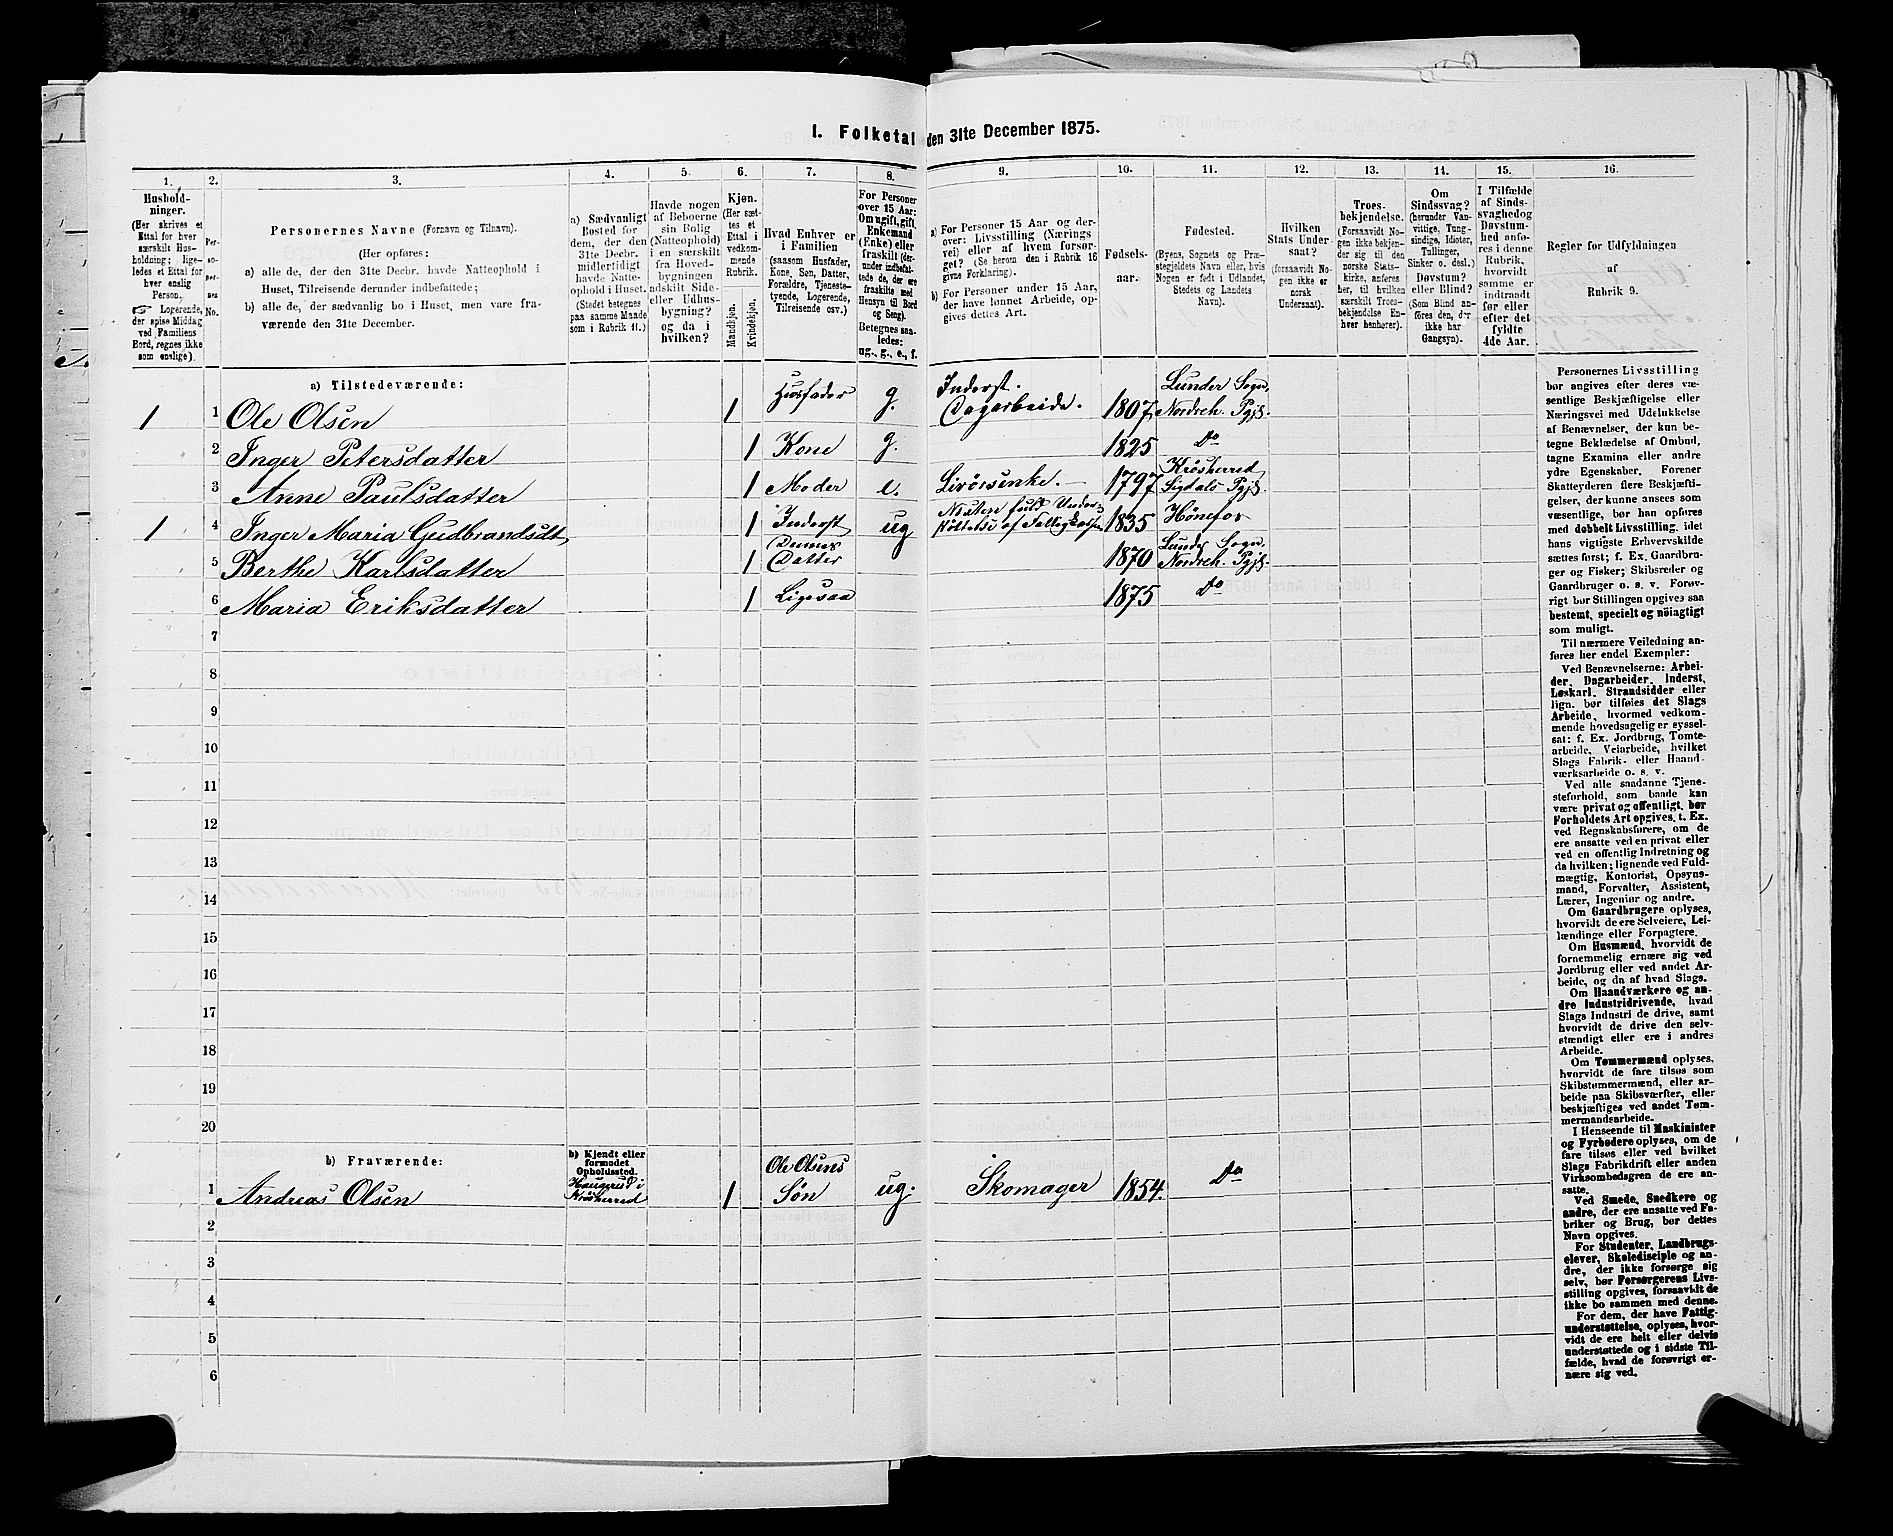 I. Folketal den 31te December 1875.
1. 2. 3. 4. 5. 6. 7. 8. 9. 10. 11. 12. 13. 14. 15. 16.
Hushold-
ninger.
(Her skrives et
Ettal for hver
særskilt Hus-
holdning; lige-
ledes et Ettal for
hver enslig
Person.
☞ Logerende,
der spise Middag
ved Familiens
Bord, regnes ikke
som enslige).
Per-
so-
ner-
nes
No.
Personernes Navne (Fornavn og Tilnavn).
(Her opføres:
a) alle de, der den 31te Decbr. havde Natteophold i
Huset, Tilreisende derunder indbefattede;
b) alle de, der sædvanlig bo i Huset, men vare fra-
værende den 31te December.
a) Sædvanligt
Bosted for
dem, der den
31te Decbr.
midlertidigt
havde Natte-
ophold i Huset.
(Stedet betegnes
paa samme Maade
som i Rubrik 11.)
Havde nogen
af Beboerne
sin Bolig
(Natteophold)
i en særskilt
fra Hoved-
bygningen
adskilt Side-
eller Udhus-
bygning?
og da i
hvilken?
Kjøn.
(Her sæt-
tes et
Ettal i
vedkom-
mende
Rubrik.
Mandkjøn.
Kvindekjøn.
Hvad Enhver er
i Familien
(saasom Husfader,
Kone, Søn, Datter,
Forældre, Tjeneste-
tyende, Logerende,
Tilreisende osv.)
For Personer
over 15 Aar:
Om ugift, gift,
Enkemand
(Enke) eller
fraskilt (der-
under indbefat-
tede de, der ere
fraskilte med
Hensyn til Bord
og Seng).
Betegnes saa-
ledes:
ug., g., e., f.
a) For Personer 15 Aar og der-
over: Livsstilling (Nærings-
vei) eller af hvem forsør-
get? (Se herom den i Rubrik 16
givne Forklaring).
b) For Personer under 15 Aar,
der have lønnet Arbeide, op-
gives dettes Art.
Fødsels-
aar.
Fødested.
(Byens, Sognets og Præ-
stegjeldets Navn eller, hvis
Nogen er født i Udlandet,
Stedets og Landets
Navn).
Hvilken
Stats Under-
saat?
(forsaavidt No-
gen ikke er
norsk
Undersaat).
Troes-
bekjendelse.
(Forsaavidt No-
gen ikke bekjen-
der sig til den
norske Stats-
kirke, anføres
her, til hvilken
særskilt Troes-
bekjendelse En-
hver henhører).
Om
Sindssvag?
(herunder Van-
vittige, Tung-
sindige, Idioter,
Tullinger,
Sinker o. desl.)
Døvstum?
eller Blind?
(Som Blind an-
føres den, der
ikke har
Gangsyn).
I Tilfælde
af Sinds-
svaghed og
Døvstum-
hed anfø-
res i denne
Rubrik,
hvorvidt
samme er
indtraadt
før eller
efter det
fyldte
4de Aar.
Regler for Udfyldningen
af
Rubrik 9.
a) Tilstedeværende:
1 1 Ole Olsen 1 Husfader g. Inderst. Dagarbeide. 1807 Lunder Sogn, Nordreh. Pgjl.
2 Inger Petersdatter 1 Kone g. 1825 Do
3 Anne Paulsdatter 1 Moder e. Livørsenke. 1797 Krösherred Sigdals Pgjl.
1 4 Inger Maria Gudbrandsdt 1 Inderst ug 1835 Hönefos
5 Berthe Karlsdatter 1 Dennes Datter 1870 Lunder Sogn, Nordreh. Pgjl.
6 Maria Eriksdatter 1 Ligesaa 1875 Do
7
8
9
10
11
12
13
14
15
16
17
18
19
20
b) Fraværende:
b) Kjendt eller
formodet
Opholdssted.
1 Andreas Olsen Haugerud i Krösherred 1 Ole Olsens Søn ug. Skomager 1854. Do
2
3
4
5
6
Personernes Livsstilling
bør angives efter deres væ-
sentlige Beskjæftigelse eller
Næringsvei med Udelukkelse
af Benævnelser, der kun be-
tegne Beklædelse af Ombud,
tagne Examina eller andre
ydre Egenskaber. Forener
Skatteyderen flere Beskjæfti-
gelser, der kunne ansees som
væsentlige, bør han opføres
med dobbelt Livsstilling, idet
hans vigtigste Erhvervskilde
sættes først; f. Ex. Gaardbru-
ger og Fisker; Skibsreder og
Gaardbruger o. s. v. Forøv-
rigt bør Stillingen opgives saa
bestemt, specielt og nöiagtigt
som muligt.
Til nærmere Veiledning an-
føres her endel Exempler:
Ved Benævnelserne: Arbei-
der, Dagarbeider, Inderst,
Løskarl, Strandsidder eller
lign. bør tilføies det Slags
Arbeide, hvormed vedkom-
mende hovedsagelig er syssel-
sat; f. Ex. Jordbrug, Tomte-
arbeide, Veiarbeide, hvilket
Slags Fabrik- eller Haand-
værksarbeide o. s. v.
Ved alle saadanne Tjene-
steforhold, som baade kan
være privat og offentligt, bør
Forholdets Art opgives, t. Ex.
ved Regnskabsførere, om de
ere ansatte ved en privat eller
ved en offentlig Indretning og
da hvilken; lignende ved Fuld-
mægtig, Kontorist, Opsyns-
mand, Forvalter, Assistent,
Lærer, Ingeniør og andre.
Om Gaardbrugere oplyses,
hvorvidt de ere Selveiere, Lei-
lændinge eller Forpagtere.
Om Husmænd, hvorvidt de
fornemmelig ernære sig ved
Jordbrug eller ved andet Ar-
beide, og da af hvad Slags.
Om Haandværkere og an-
dre Industridrivende, hvad
Slags Industri de drive, samt
hvorvidt de drive den selv-
stændigt eller ere i andres
Arbeide.
Om Tømmermænd oplyses,
hvorvidt de fare tilsøs som
Skibstømmermænd, eller ar-
beide paa Skibsværfter, eller
beskjæftiges ved andet Tøm-
mermandsarbeide.
I Henseende til Maskinister
og Fyrbødere oplyses, om de
fare tilsøs eller ved hvilket
Slags Fabrikdrift eller anden
Virksombedsgren de ere an-
satte.
Ved Smede, Snedkere og
andre, der ere ansatte ved Fa-
briker og Brug, bør dettes
Navn opgives.
For Studenter, Landbrugs-
elever, Skoledisciple og an-
dre, der ikke forsørge sig
selv, bør Forsørgerens Livs-
stilling opgives, forsaavidt de
ikke bo sammen med denne.
For dem, der have Fattig-
understøttelse, oplyses, hvor-
vidt de ere helt eller delvis
understøttede og i sidste Til-
fælde, hvad de forøvrigt er-
nære sig ved.